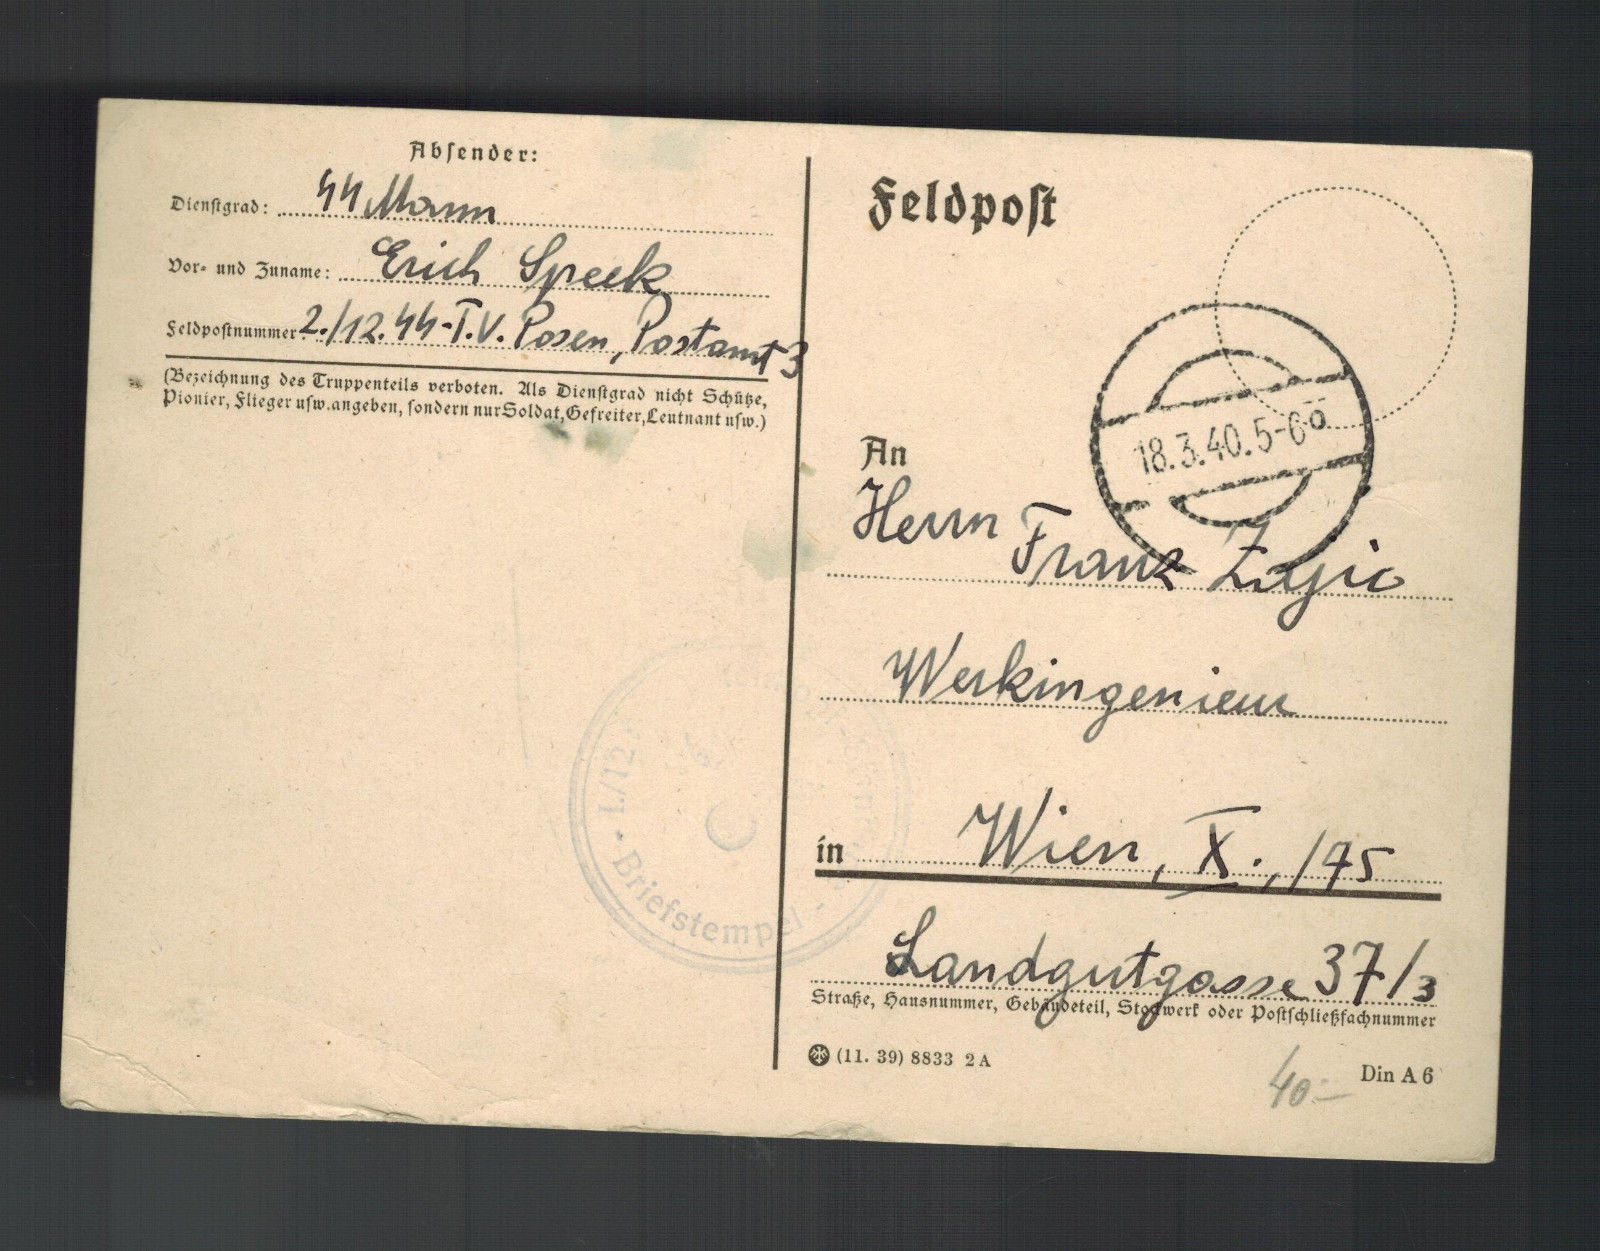 Absender:
Dienstgrad: ᛋᛋ Mann
Vor- und Zuname: Erich Speek
Feldpostnummer 2./12. ᛋᛋ-T.V. Posen, Postamt 3
(Bezeichnung des Truppenteils verboten. Als Dienstgrad nicht Schütze,
Pionier, Flieger usw. angeben, sondern nur Soldat, Gefreiter, Leutnant usw.)
Feldpost
18.3.40.5-6⁰
An
Herrn Franz Zajic
Werkingenieur
in Wien, X., /75
Landgutgasse 37/3
Straße, Hausnummer, Gebäudeteil, Stockwerk oder Postschließfachnummer
(11. 39) 8833 2 A
Din A 6
40.–
I./12.
Briefstempel